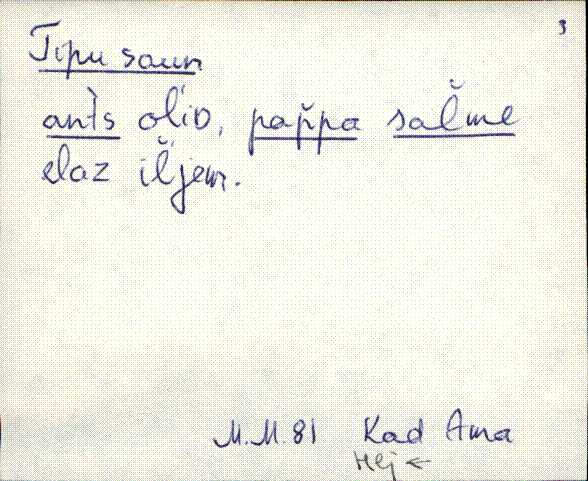 3
Tipu saun
ants olio, pap̆pa sal̆me
elaz il̆jem.
M.M. 81 Kad Ama
Hlj ←